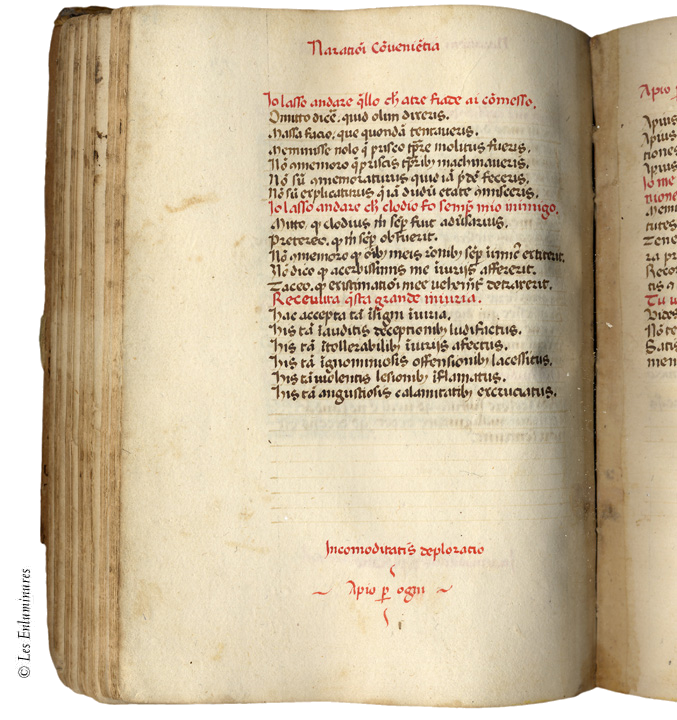 Naratiōi Cōveniētia
Io lasso andare q̄llo ch̄ atre fiade ai cōmesso.
Omitto dicē. quid olim dixeris.
Massa facio. que quondā tentaveris.
Meminisse nolo q̄ prisco tp̄re molitus fueris.
Nō memoro q̄ priscis tp̄rib; machinaveris.
Nō sū memoraturus quid iā p̄dē feceris.
Nō sū explicaturus q̄ iā dudū etate
Io lasso andare ch̄ clodio fo semp̄ mio inimigo.
Mitto. ꝙ clodius m̄ sēp̄ fuit adūsarius.
Pretereo. ꝙ m̄ sēp̄ obfuerit.
Nō memoro ꝙ oīb; meis rōnib; sēp̄ inimic̄ extiterit.
Nō dico ꝙ acerbissimis me īiuriis affecerit.
Taceo. ꝙ existimatiōi mee vehemēt̄ detraxerit.
Recevuta q̄sta grande iniuria.
Hac accepta tā īsigni īiuria.
His tā īauditis deceptionib; ludifactus.
His tā ītollerabilib; īiuriis afectus.
His tā īgnominiosis offensionib; lacessitus.
His tā violentis lesionib; īflamatus.
His tā angustiosis calamitatib; excruciatus.
Incomoditatis deploratio
~ Apio ꝑ ogni ~
Apio ꝑ
Apius
Apiu
tiones
Apius
Io me
tione
Memi
tutes
Tene
ra pr
Reco
tis
Tu v
Vides
Nō te
Satis
men
© Les Enluminures